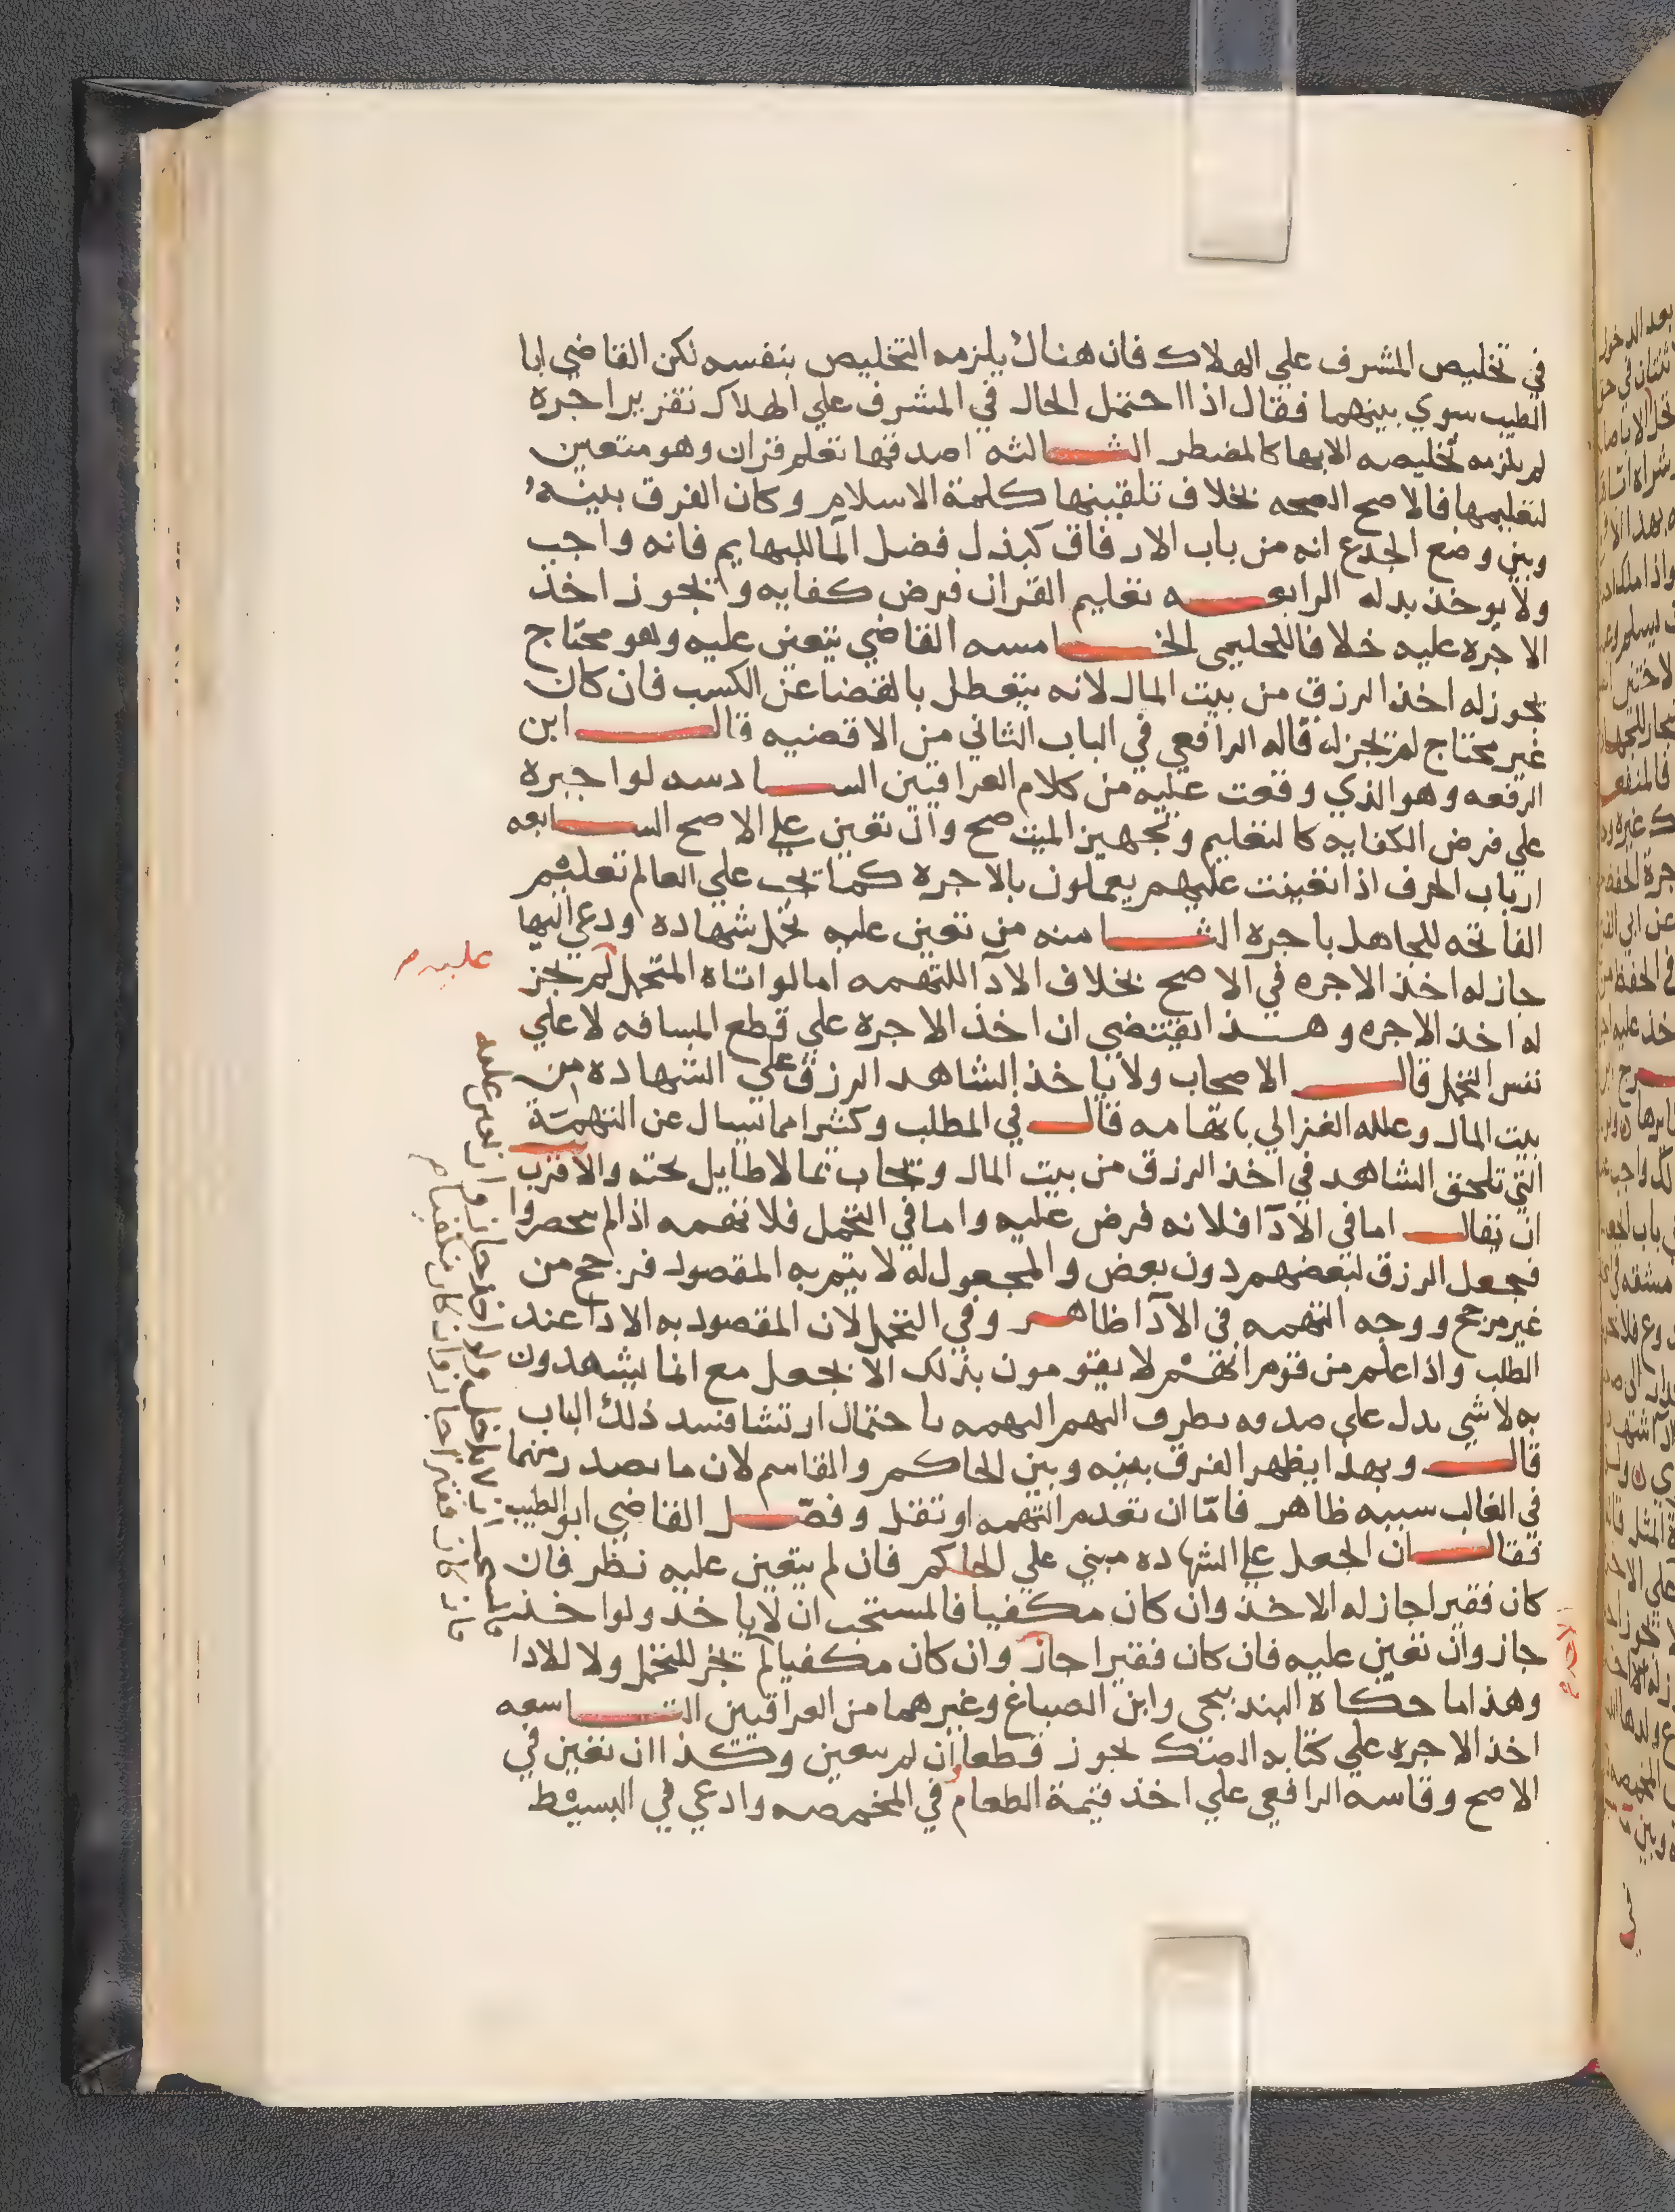 في تخليص المشرف علي الهلاك فان هناك يلزمه التخليص بنفسه لكن القاضي ابا
الطيب سوي بينهما فقال اذا احتمل الحال في المشرف علي الهلاك تقرير اجرة
لم يلزمه تخليصه الا بها كالمضطر الثالثه اصدقها تعليم قران وهو متعين
لتعليمها فالاصح الصحه بخلاف تلقينها كلمة الاسلام وكان الفرق بينه
وبين وضع الجذع انه من باب الارفاق كبذل فضل الما للبهايم فانه واجب
ولا يوخذ بدله الرابعه تعليم القران فرض كفايه ويجوز اخذ
الاجره عليه خلافا للحليمي الخامسه القاضي يتعين عليه وهو محتاج
يجوز له اخذ الرزق من بيت المال لانه يتعطل بالقضا عن الكسب فان كان
غير محتاج لم يجز له قاله الرافعي في الباب الثاني من الاقضيه قال ابن
الرفعه وهو الذي وقفت عليه من كلام العراقيين السادسه لو اجبره
علي فرض الكفايه كالتعليم وتجهيز الميت صح وان تعين علي الاصح السابعه
ارباب الحرف اذا تعينت عليهم يعملون بالاجرة كما يجب علي العالم تعليم
الفاتحه للجاهل باجره الثامنه من تعين عليه تحمل شهاده ودعي اليها
جاز له اخذ الاجره في الاصح بخلاف الادآ للتهمه اما لو اتاه المتحمل لم يجز
عليه
له اخذ الاجره وهذا يقتضي ان اخذ الاجرة علي قطع المسافه لا علي
نفس التحمل قال الاصحاب ولا ياخذ الشاهد الرزق علي الشهاده من
بيت المال وعلله الغزالي باتهامه قال في المطلب وكثيرا ما يسال عن التهمة
التي تلحق الشاهد في اخذ الرزق من بيت المال ويجاب بما لا طايل تحته والاقرب
ان يقال اما في الادآ فلانه فرض عليه واما في التحمل فلا تهمه اذا لم يحصروا
فجعل الرزق لبعضهم دون بعض والمجعول له لا يتم به المقصود فرجح من
غير مرجح ووجه التهمه في الادآ ظاهر وفي التحمل لان المقصود به الادا عند
الطلب واذا علم من قوم انهم لا يقومون بذلك الا بجعل مع انما يشهدون
به لا شي يدل علي صدقه تطرق اليهم التهمه باحتمال ارتشا فسد ذلك الباب
قال وبهذا يظهر الفرق بينه وبين الحاكم والقاسم لان ما يصدر منهما
في الغالب سببه ظاهر فامّا ان تعدم التهمه او تقل وفصّل القاضي ابو الطيب
فقال ان الجعل علي الشهاده مبني علي الحاكم فان لم يتعين عليه نظر فان
كان فقيرا جاز له الاخذ وان كان مكفيا فالمستحب ان لا ياخذ ولو اخذ
جاز وان تعين عليه فان كان فقيرا جاز وان كان مكفيا لم يجز للتحمل ولا للادا
وهذا ما حكاه البندنيجي وابن الصباغ وغيرهما من العراقيين التاسعه
اخذ الاجره علي كتابه الصك يجوز قطعا ان لم يتعين وكذا ان تعين في
الاصح وقاسه الرافعي علي اخذ قيمة الطعام في المخمصه وادعي في البسيط